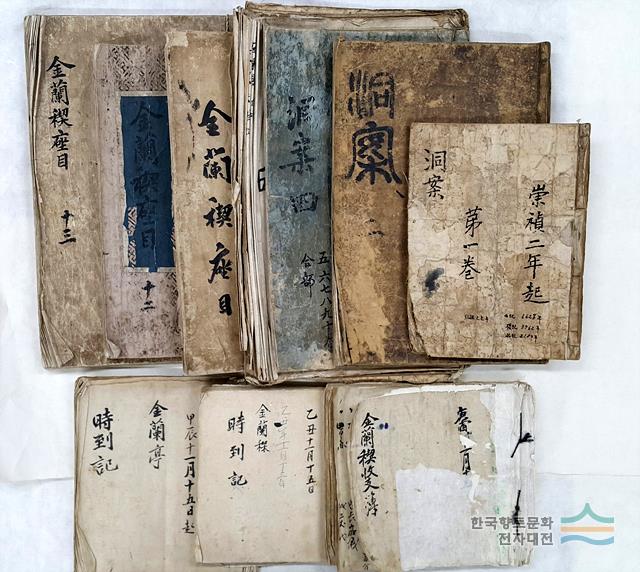 金蘭禊座目
十三
金蘭禊座目
十二
金蘭禊座目
洞案 四
五六七八九十
合部
洞案
二
洞案
崇禎二年起
第一卷
金蘭亭
時到記
甲辰十一月十五日起
金蘭禊
時到記
乙丑十一月十五日
金蘭禊收支簿
한국향토문화
전자대전